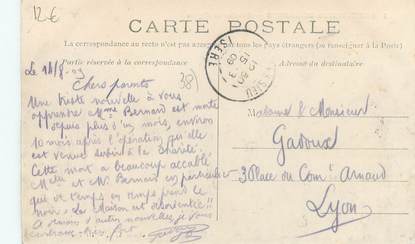 12€
CARTE POSTALE
La correspondance au recto n'est pas acceptée par tous les pays étrangers (se renseigner à la Poste)
Partie réservée à la correspondance
Adresse du destinataire
ISÈRE
Le 14/8-09
38)
Chers parents
Une triste nouvelle à vous
apprendre Mme Bernard est morte
depuis plus d'un mois, environ
10 mois après l'opération qu'elle
est venue subir à la Charité.
Cette mort a beaucoup accablé
et Mr Bernard en particulier
qui de temps en temps perd le
La Maison est
nouvelle, je vous
Madame & Monsieur
Gadoux
3 Place du Comt Arnaud
Lyon